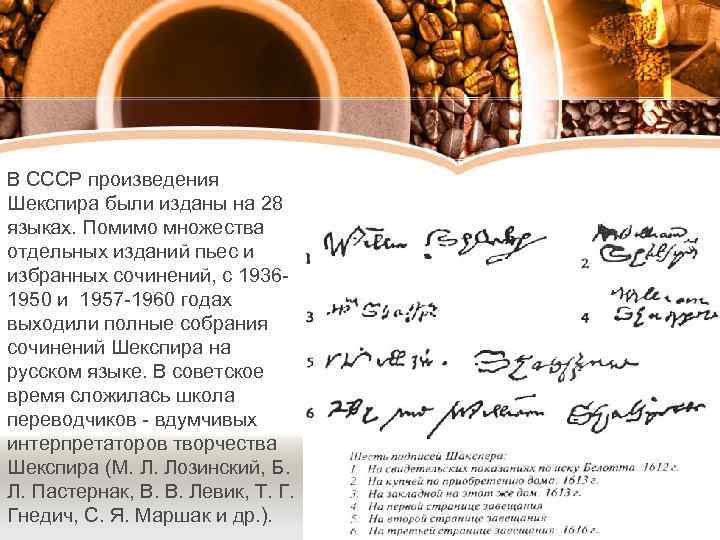 В СССР произведения
Шекспира были изданы на 28
языках. Помимо множества
отдельных изданий пьес и
избранных сочинений, с 1936-
1950 и 1957-1960 годах
выходили полные собрания
сочинений Шекспира на
русском языке. В советское
время сложилась школа
переводчиков - вдумчивых
интерпретаторов творчества
Шекспира (М. Л. Лозинский, Б.
Л. Пастернак, В. В. Левик, Т. Г.
Гнедич, С. Я. Маршак и др. ).
1
2
3
4
5
6
Шесть подписей Шакспера:
1. На свидетельских показаниях по иску Белотта. 1612 г.
2. На купчей по приобретению дома. 1613 г.
3. На закладной на этот же дом. 1613 г.
4. На первой странице завещания
5. На второй странице завещания
6. На третьей странице завещания. 1616 г.